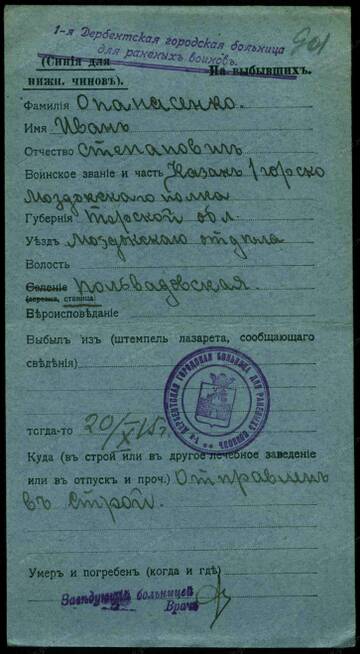 1-я Дербентская городская больница
для раненых воинов.
901
(Синія для
нижн. чиновъ).
На выбывшихъ.
Фамилія Опанасенко.
Имя Иванъ
Отчество Степановичъ
Воинское званіе и часть Казакъ 1 горско
Моздокскаго полка
Губернія Терской обл.
Уѣздъ Моздокскаго отдѣла
Волость
Селеніе
(деревня, станица)
Вѣроисповѣданіе
Выбылъ изъ (штемпель лазарета, сообщающаго
свѣдѣнія)
1я ДЕРБЕНТСКАЯ ГОРОДСКАЯ БОЛЬНИЦА ДЛЯ РАНЕНЫХЪ ВОИНОВЪ
тогда-то 20/X 15г.
Куда (въ строй или въ другое лечебное заведеніе
или въ отпускъ и проч.) Отправленъ
въ строй.
Умеръ и погребенъ (когда и гдѣ)
Завѣдующій больницей
Врачъ